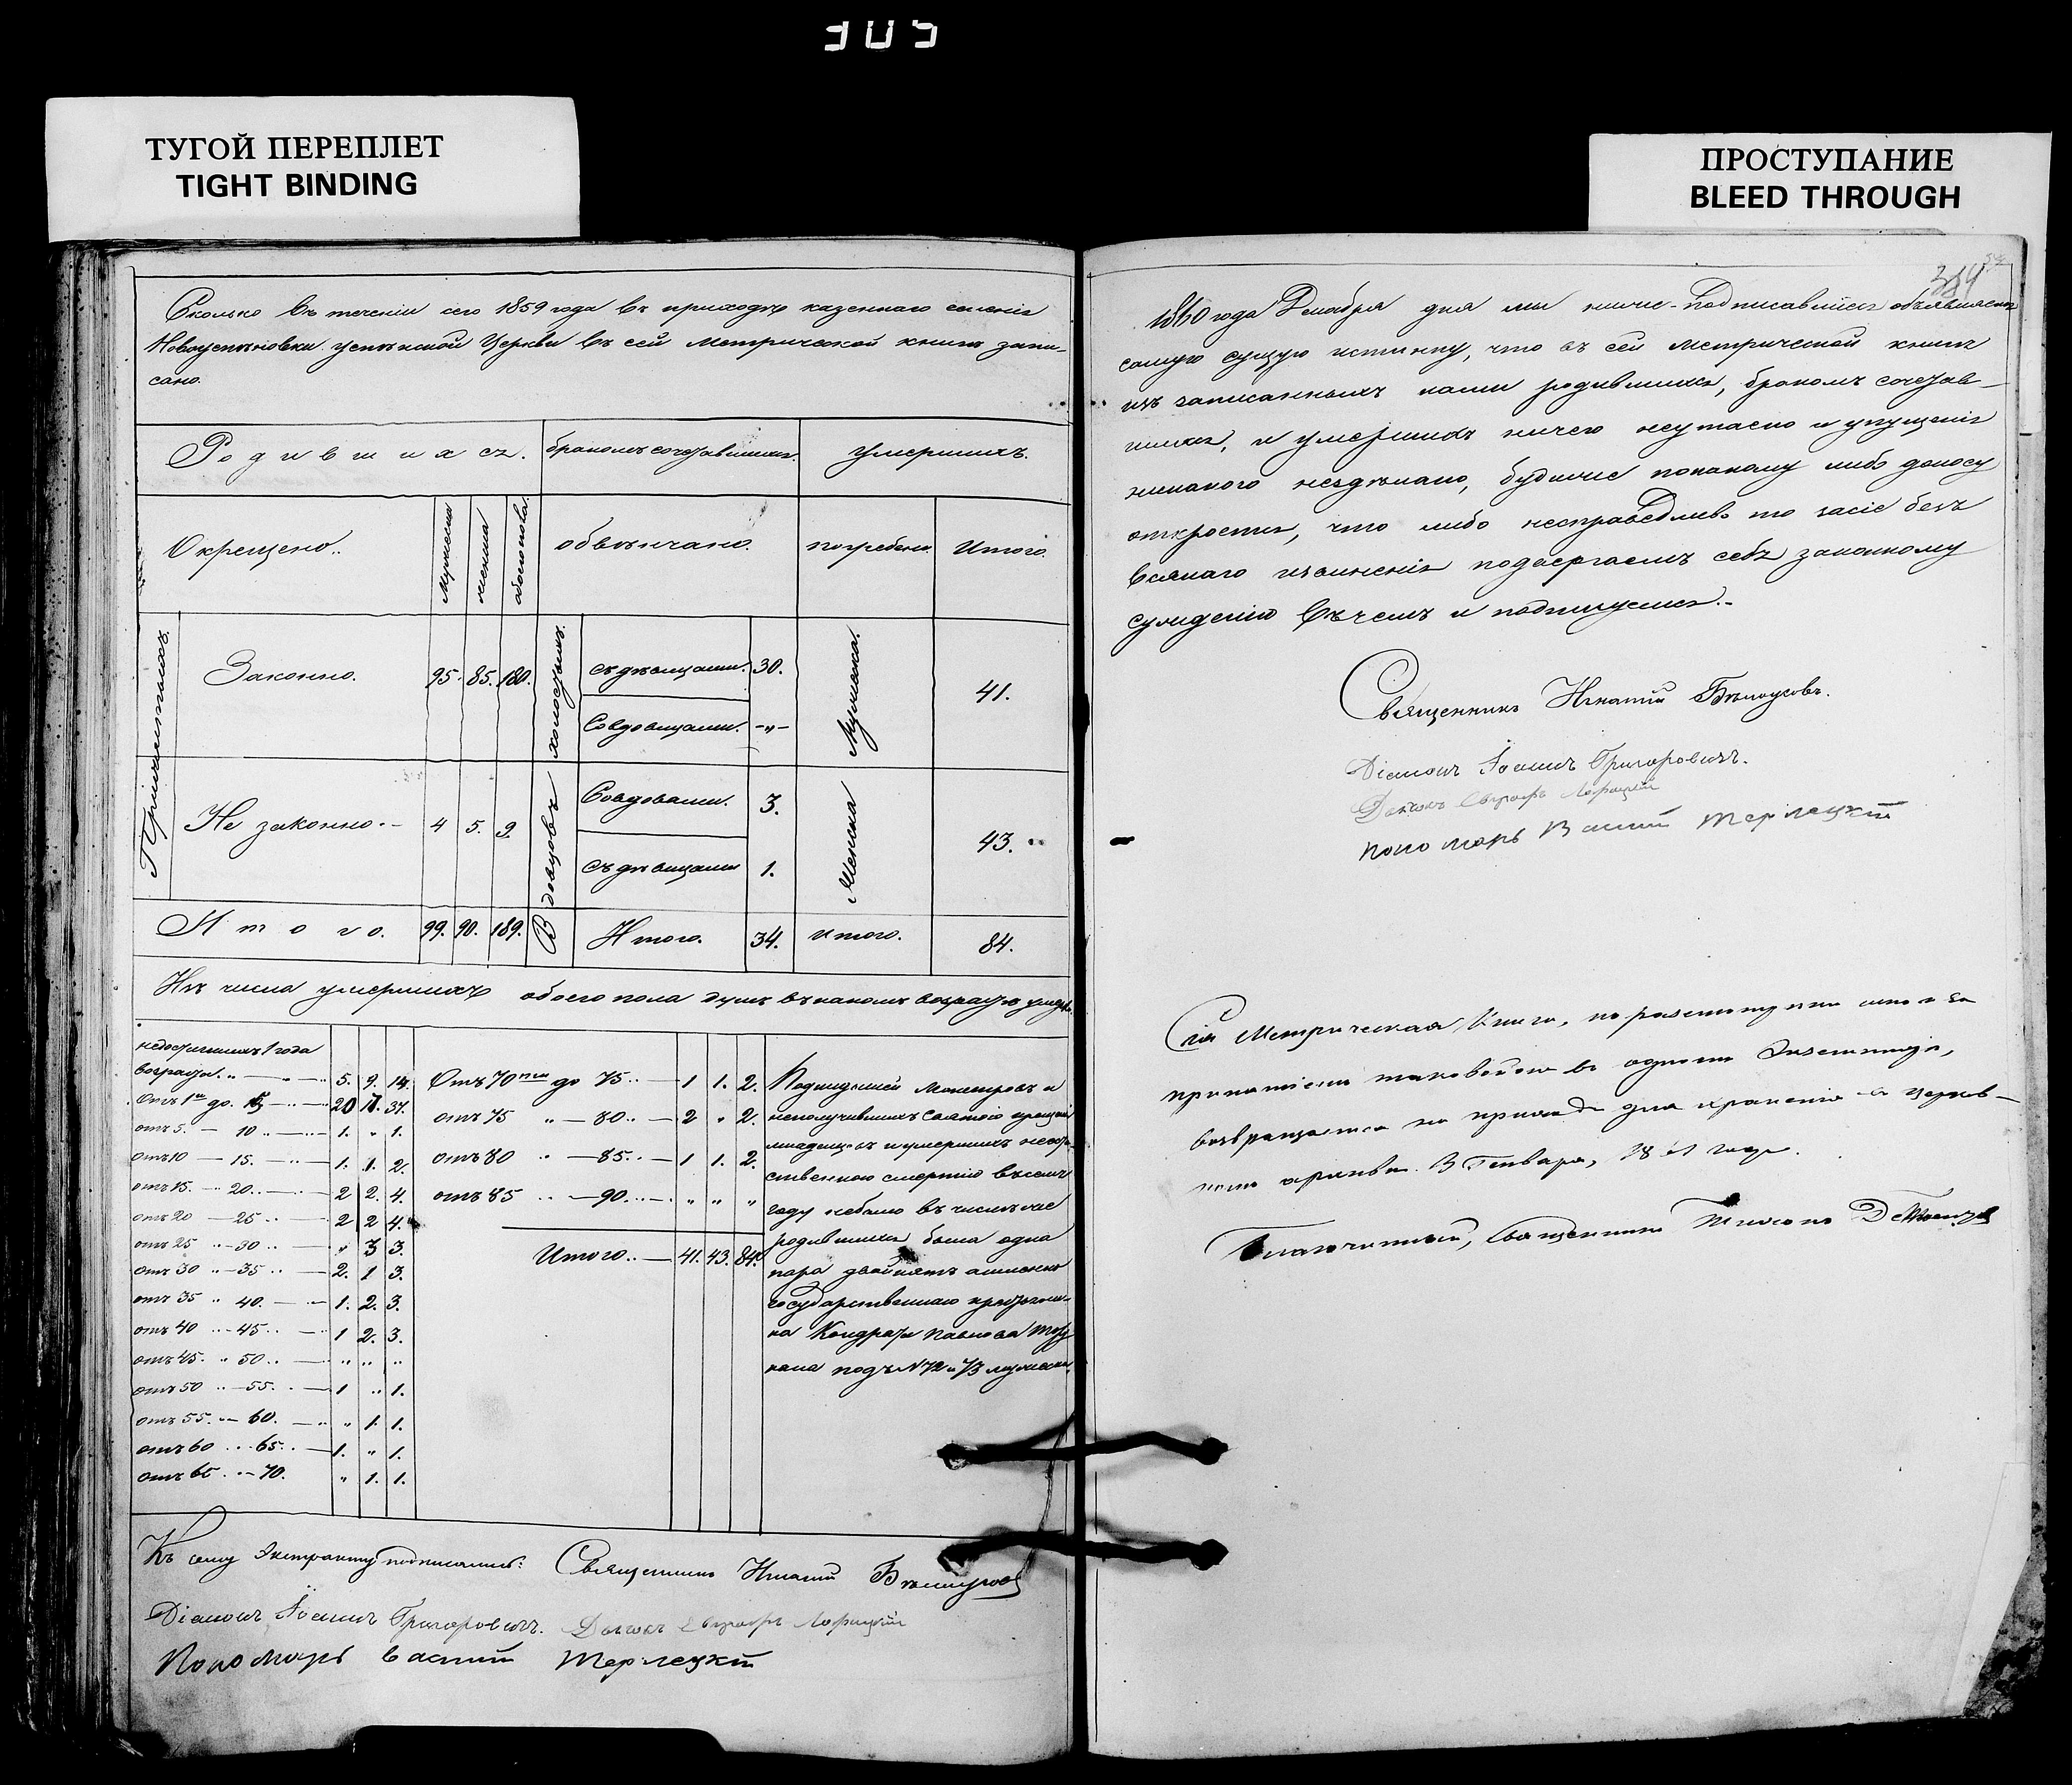 305
ТУГОЙ ПЕРЕПЛЕТ
TIGHT BINDING
ПРОСТУПАНИЕ
BLEED THROUGH
Сколько въ теченіи сего 1859 года въ приходѣ казеннаго селенія
Новоуспеновки Успенской Церкви въ сей метрической книгѣ запи-
сано.
Родившихся. бракомъ сочетавшихся. умершихъ.
Окрещено. мужеска женска обоего пола обвѣнчано. погребено. Итого.
Законно. 95. 85. 180. холостыхъ. съ дѣвицами. 30. Мужеска. 41.
Совдовицами. -"-
Не законно.- 4 5. 9. Вдовцовъ Совдовами. 3. Женска 43.
съ дѣвицами 1.
Итого. 99. 90. 189. Итого. 34. итого. 84.
Изъ числа умершихъ обоего пола душъ въ какомъ возрастѣ
недостигшихъ 1 года
возраста. 5. 9. 14.
Отъ 1го до. 5 20 17. 37.
отъ 5. — 10 1. " 1.
отъ 10 — 15. 1. 1. 2.
отъ 15. — 20. 2 2. 4.
отъ 20 — 25 2 2 4.
отъ 25 — 30 " 3 3.
отъ 30 — 35 2. 1 3.
отъ 35 40. 1. 2. 3.
отъ 40 — 45 1 2. 3.
отъ 45. " 50 " " "
отъ 50 — 55. 1 " 1.
отъ 55. — 60. " 1. 1.
отъ 60 65. 1. " 1.
отъ 65 — 70. " 1. 1.
Отъ 70ти до 75 1 1. 2.
отъ 75 " — 80 2 " 2.
отъ 80 " — 85 1 1. 2.
отъ 85 — 90 " " "
Итого 41. 43. 84.
неполучившихъ Святаго крещенія
младенцевъ и умершихъ неесте-
ственною смертію въ семъ
году небыло въ числѣ же
родившихся была одна
пара двойнятъ
государственнаго крестьяни-
на Кондрата Павлова
подъ N 72 и 73 мужеска.
Къ сему Экстракту подписались: Священникъ Игнатій Бѣлоусовъ
Діаконъ Іоаннъ Григоровичъ. Дьячокъ Евграфъ
Пономарь Василій Терлецкій
384
1860 года Декабря дня мы ниже-подписавшіеся объявляемъ
самую сущую истинну, что въ сей метрической книгѣ
изъ записанныхъ нами родившихся, бракомъ сочетав-
шихся, и умершихъ ничего неутаено и упущенія
никакого нездѣлано, будеже покакому либо доносу
откроется, что либо несправедливо то засіе безъ
всякаго извиненія подвергаемъ себя законному
сужденію Въ чемъ и подпишемся.-
Священникъ Игнатій Бѣлоусовъ.
Діаконъ Іоаннъ Григоровичъ.
Дьячокъ Евграфъ
Пономарь Василій Терлецкій
Сія Метрическая Книга, по разсмотрѣніи оной и за
принятіемъ таковойже въ одномъ Экземплярѣ,
возвращается на приходъ для храненія въ церков-
номъ архивѣ. Генваря, 1861 года.
Благочинный, Священникъ